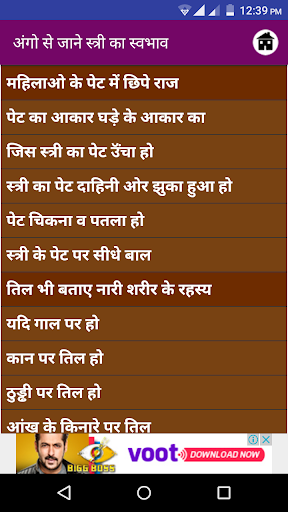 12:39 PM
अंगो से जाने स्त्री का स्वभाव
महिलाओ के पेट में छिपे राज
पेट का आकार घड़े के आकार का
जिस स्त्री का पेट उँचा हो
स्त्री का पेट दाहिनी ओर झुका हुआ हो
पेट चिकना व पतला हो
स्त्री के पेट पर सीधे बाल
तिल भी बताए नारी शरीर के रहस्य
यदि गाल पर हो
कान पर तिल हो
ठुड्ढी पर तिल हो
आंख के किनारे पर तिल
BIGG BOSS
voot
DOWNLOAD NOW